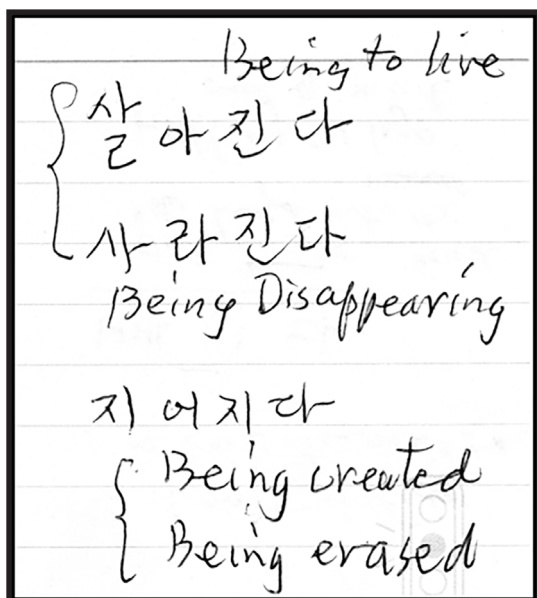 Being to live
살아진다
사라진다
Being Disappearing
지어지다
Being created
Being erased